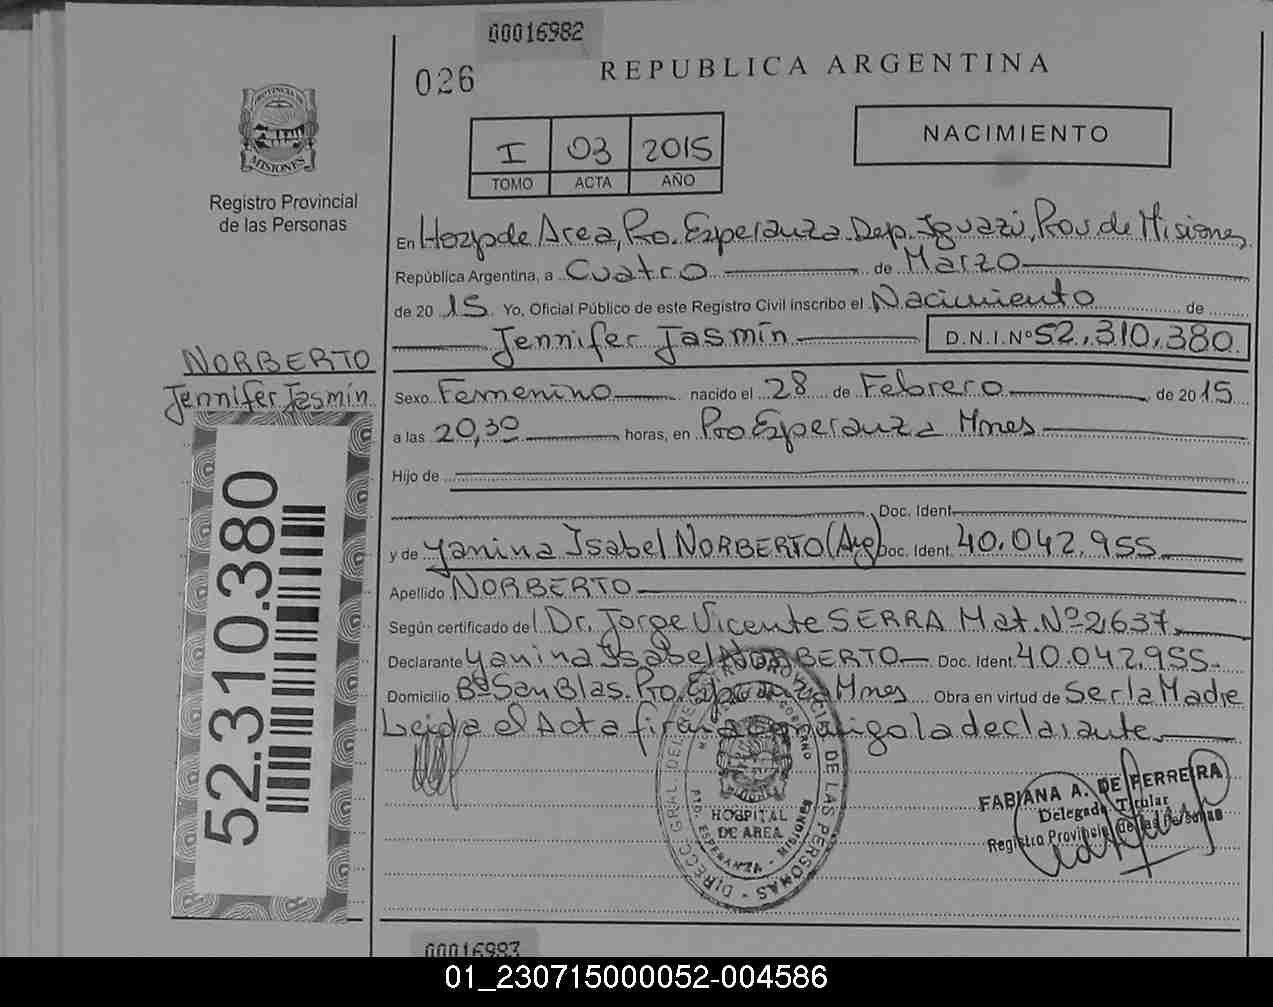 00016982
026
REPUBLICA ARGENTINA
PROVINCIA DE MISIONES
Registro Provincial
de las Personas
I 03 2015
TOMO ACTA AÑO
NACIMIENTO
En Hosp de Area, Pto. Esperanza Dep. Iguazú, Prov. de Misiones
República Argentina, a Cuatro de Marzo
de 2015 Yo, Oficial Público de este Registro Civil inscribo el Nacimiento de
Jennifer Jasmín D.N.I. Nº 52.310.380
NORBERTO
Jennifer Jasmín
Sexo Femenino nacido el 28 de Febrero de 2015
a las 20,30 horas, en Pto Esperanza Mnes
Hijo de
Doc. Ident.
y de Yanina Isabel NORBERTO (Arg) Doc. Ident. 40.042.955
Apellido NORBERTO
Según certificado del Dr. Jorge Vicente SERRA Mat. Nº 2,637
Declarante Yanina Isabel NORBERTO Doc. Ident. 40.042.955
Domicilio Bº San Blas. Pto. Esperanza Mnes Obra en virtud de Ser la Madre
Leida el Acta firma conmigo la declarante
52.310.380
DIREC. GRAL DEL REG. PROVINCIAL DE LAS PERSONAS
HOSPITAL
DE AREA
PTO. ESPERANZA - MISIONES
FABIANA A. DE FERREIRA
Delegada Titular
Registro Provincial de las Personas
00016983
01_230715000052-004586